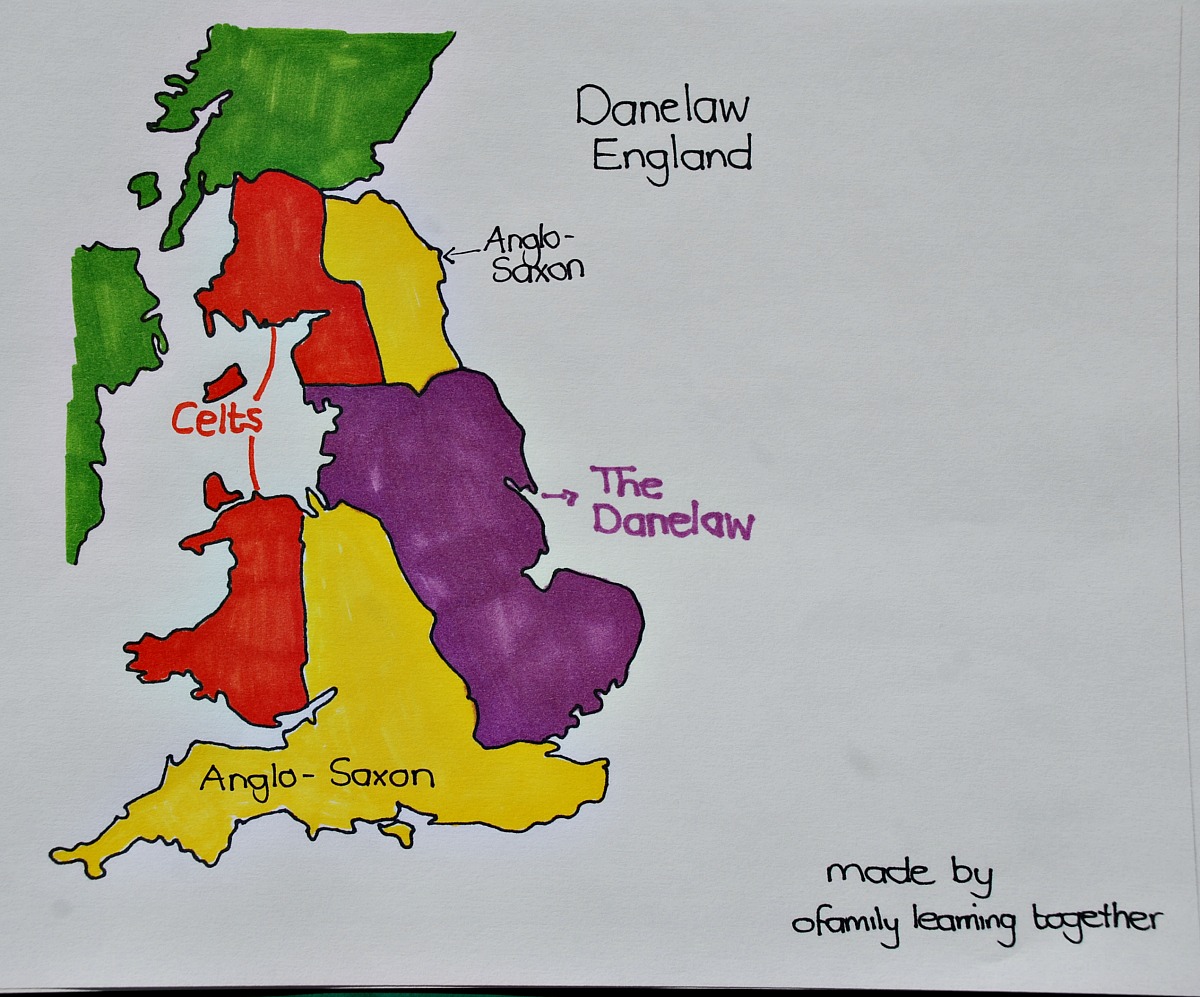 Danelaw
England
Anglo-
Saxon
Celts
The
Danelaw
Anglo- Saxon
made by
ofamily learning together